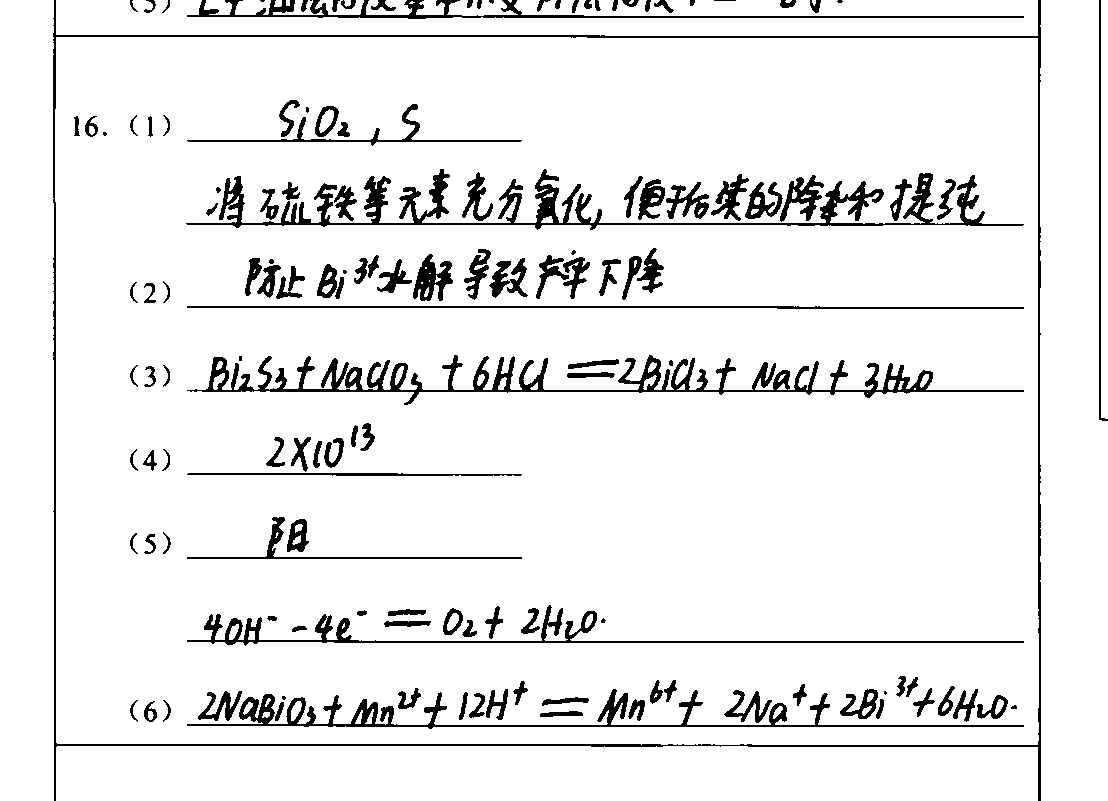 16. (1) SiO₂, S
将硫铁等元素充分氧化, 便于后续的除杂和提纯
(2) 防止Bi³⁺水解导致产率下降
(3) Bi₂S₃+NaClO₃+6HCl=2BiCl₃+NaCl+3H₂O
(4) 2×10¹³
(5) 阳
4OH⁻-4e⁻=O₂+2H₂O.
(6) 2NaBiO₃+Mn²⁺+12H⁺=Mn⁶⁺+2Na⁺+2Bi³⁺+6H₂O.